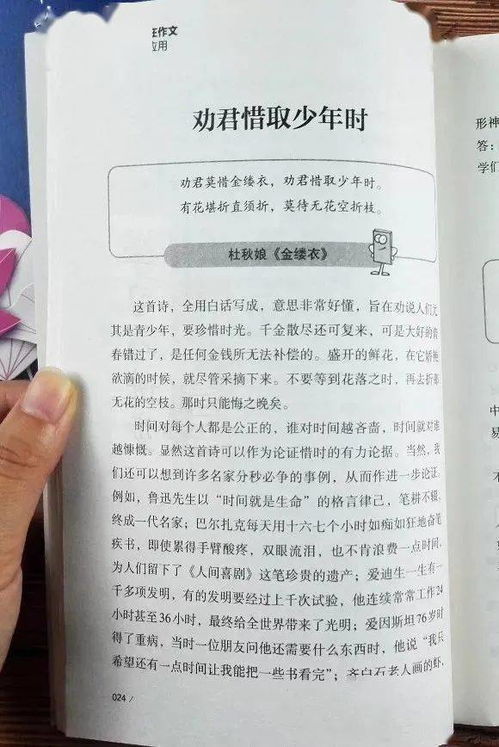 王作文
应用
劝君惜取少年时
劝君莫惜金缕衣，劝君惜取少年时。
有花堪折直须折，莫待无花空折枝。
杜秋娘《金缕衣》
这首诗，全用白话写成，意思非常好懂，旨在劝说人们尤
其是青少年，要珍惜时光。千金散尽还可复来，可是大好的青
春错过了，是任何金钱所无法补偿的。盛开的鲜花，在它娇艳
欲滴的时候，就尽管采摘下来。不要等到花落之时，再去折那
无花的空枝。那时只能悔之晚矣。
时间对每个人都是公正的，谁对时间越吝啬，时间就对谁
越慷慨。显然这首诗可以作为论证惜时的有力论据。当然，我
们还可以想到许多名家分秒必争的事例，从而作进一步论证。
例如，鲁迅先生以“时间就是生命”的格言律己，笔耕不辍，
终成一代名家；巴尔扎克每天用十六七个小时如痴如狂地奋笔
疾书，即使累得手臂酸疼，双眼流泪，也不肯浪费一点时间，
为人们留下了《人间喜剧》这笔珍贵的遗产；爱迪生一生有一
千多项发明，有的发明要经过上千次试验，他连续常常工作24
小时甚至36小时，最终给全世界带来了光明；爱因斯坦76岁时
得了重病，当时一位朋友问他还需要什么东西时，他说“我只
希望还有一点时间让我能把一些书看完”；齐白石老人画的虾，
024/
形神
答：
学们
中
易